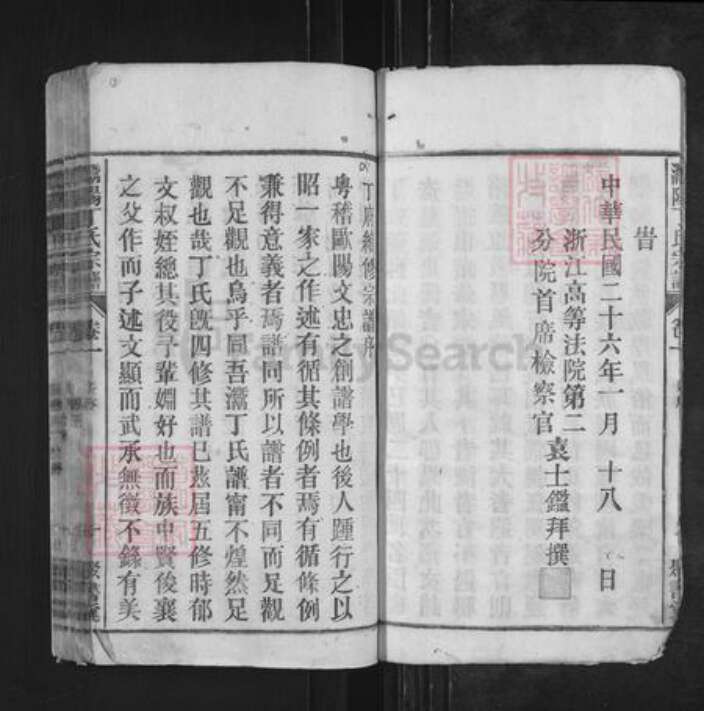 旹
中華民國二十六年一月十八日
浙江高等法院第二
分院首席檢察官袁士鑑拜撰
丁氏續修宗譜序
粵稽歐陽文忠之創譜學也後人踵行之以
昭一家之作述有循其條例者焉有循條例
兼得意義者焉譜同所以譜者不同而足觀
不足觀也烏乎同吾灊丁氏譜甯不煌然足
觀也哉丁氏既四修其譜已茲屆五修時郁
文叔姪總其役子輩嫺好也而族中賢後襄
之父作而子述文顯而武承無徵不錄有美
丁氏宗譜
卷一
FamilySearch